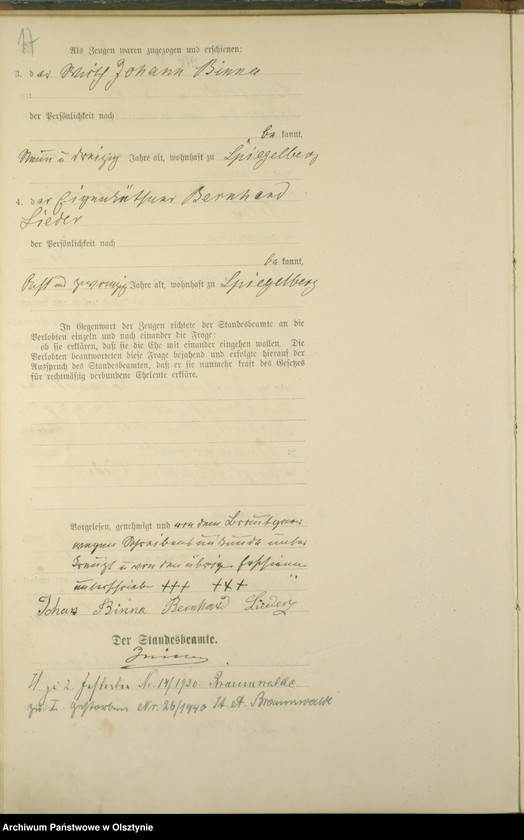 17
Als Zeugen waren zugezogen und erschienen:
3. der Wirth Johann Binna
der Persönlichkeit nach
be kannt,
Neun u dreißig Jahre alt, wohnhaft zu Spiegelberg
4. der Eigenkäthner Bernhard
Lieder
der Persönlichkeit nach
be kannt,
und zwanzig Jahre alt, wohnhaft zu Spiegelberg
In Gegenwart der Zeugen richtete der Standesbeamte an die
Verlobten einzeln und nach einander die Frage:
ob sie erklären, daß sie die Ehe mit einander eingehen wollen. Die
Verlobten beantworteten diese Frage bejahend und erfolgte hierauf der
Ausspruch des Standesbeamten, daß er sie nunmehr kraft des Gesetzes
für rechtmäßig verbundene Eheleute erkläre.
Vorgelesen, genehmigt und von dem
wegen Schreibensunkunde unter
kreuzt u von den übrigen
unterschrieben +++ +++
Johan Binna Bernhard
Der Standesbeamte.
zu 2. Gestorben Nr. 14/1930. Braunswalde
zu I. gestorben Nr. 26/1940 St. A. Braunswalde
Archiwum Państwowe w Olsztynie